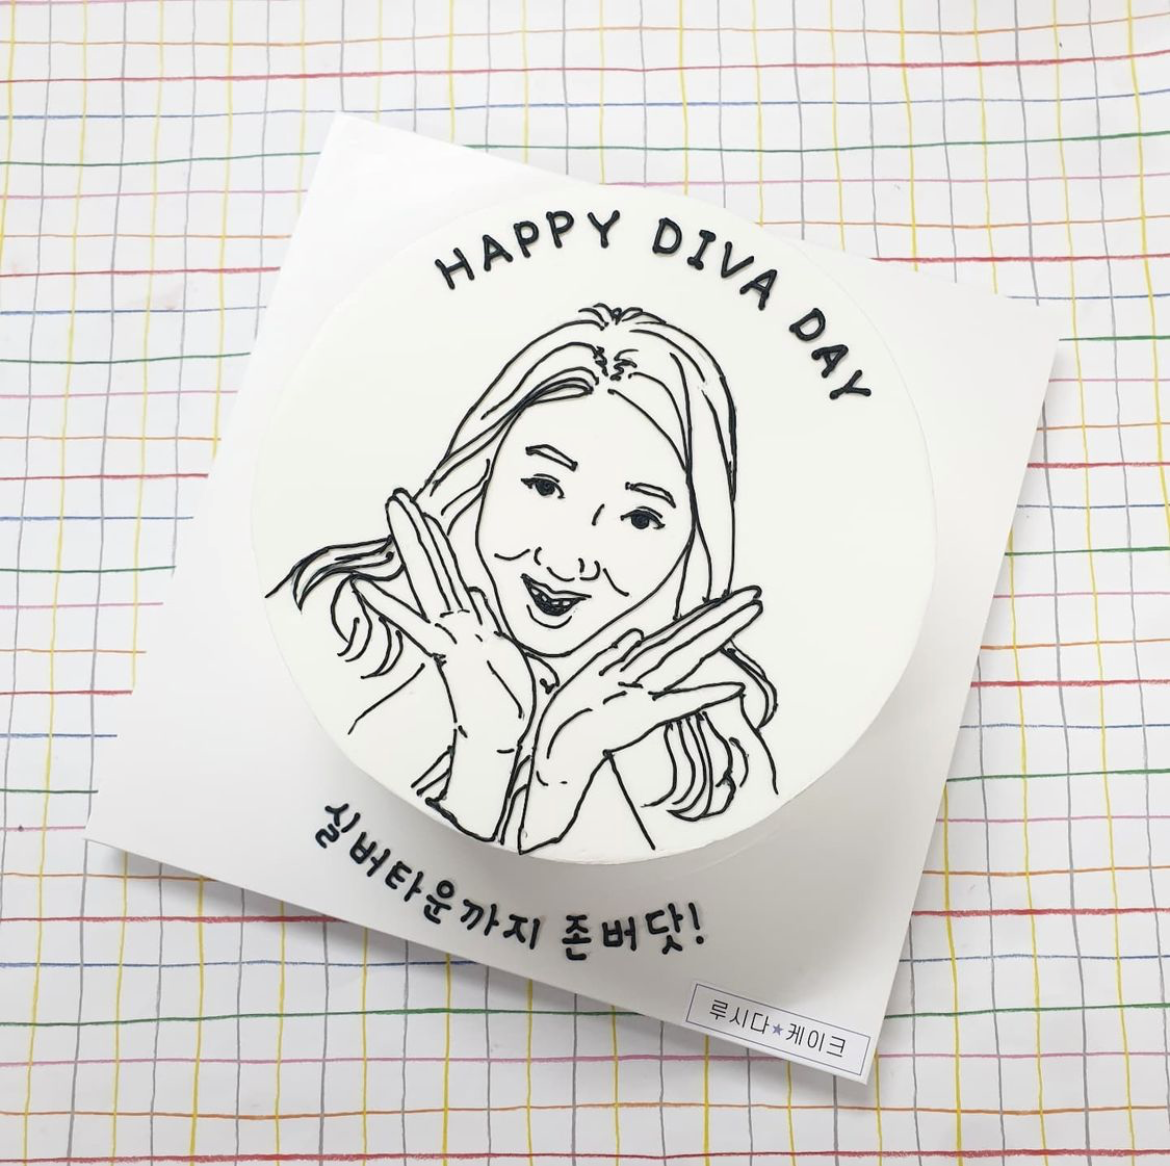 HAPPY DIVA DAY
실버타운까지 존버닷!
루시다★케이크